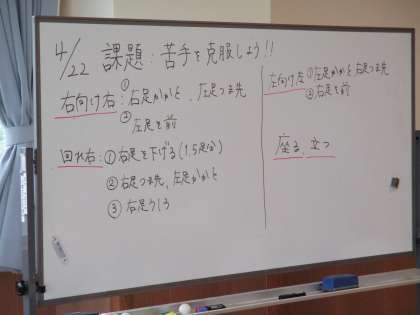 4/22 課題：苦手を克服しよう!!
右向け右：①右足かかと、左足つま先
②左足を前
回れ右：①右足を下げる(1.5足分)
②右足つま先、左足かかと
③右足うしろ
左向け左 ①左足かかと 右足つま先
②右足を前
座る、立つ